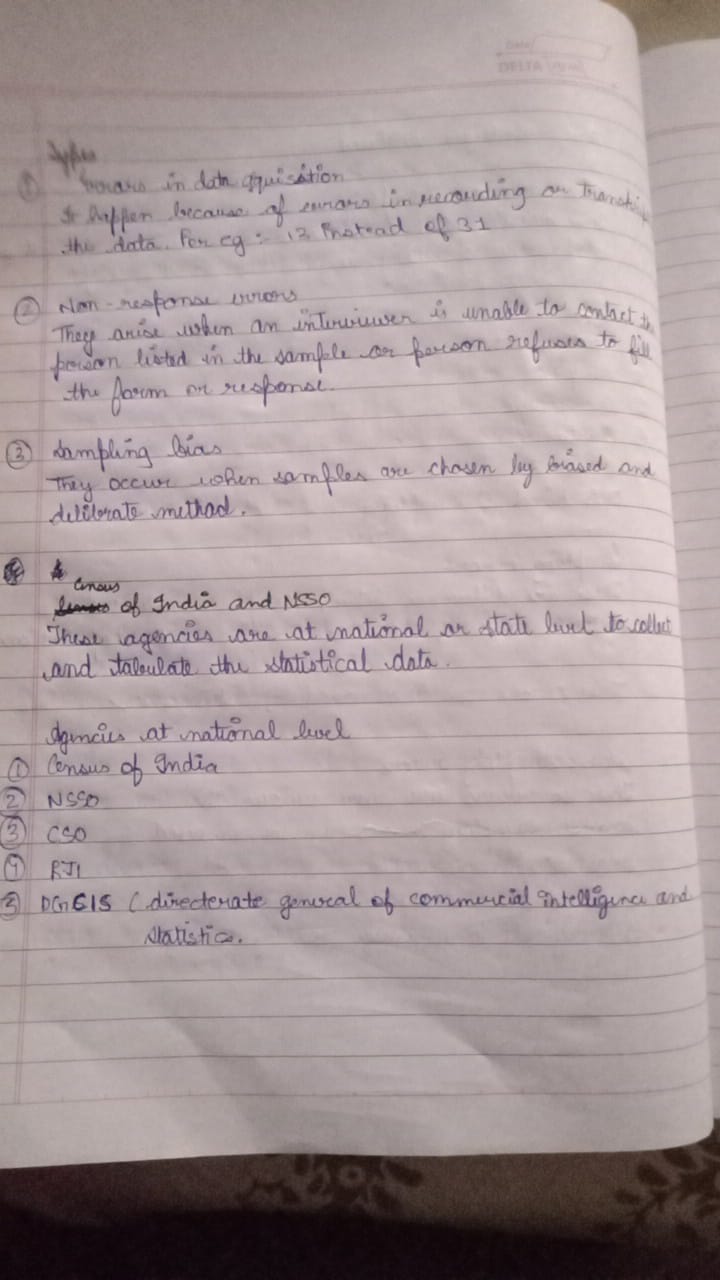 Date
DELTA
Types
① Errors in data aquisition
It happen because of errors in recording or
the data. For eg :- 13 instead of 31
② Non-response errors
They arise when an interviewer is unable to contact
person listed in the sample or person refuses to fill
the form or response.
③ Sampling bias
They occur when samples are chosen by biased and
deliberate method.
Census
of India and NSSO
These agencies are at national or state level to collect
and tabulate the statistical data.
Agencies at national level
① Census of India
② NSSO
③ CSO
④
⑤ (directerate general of commercial intelligence and
statistics.